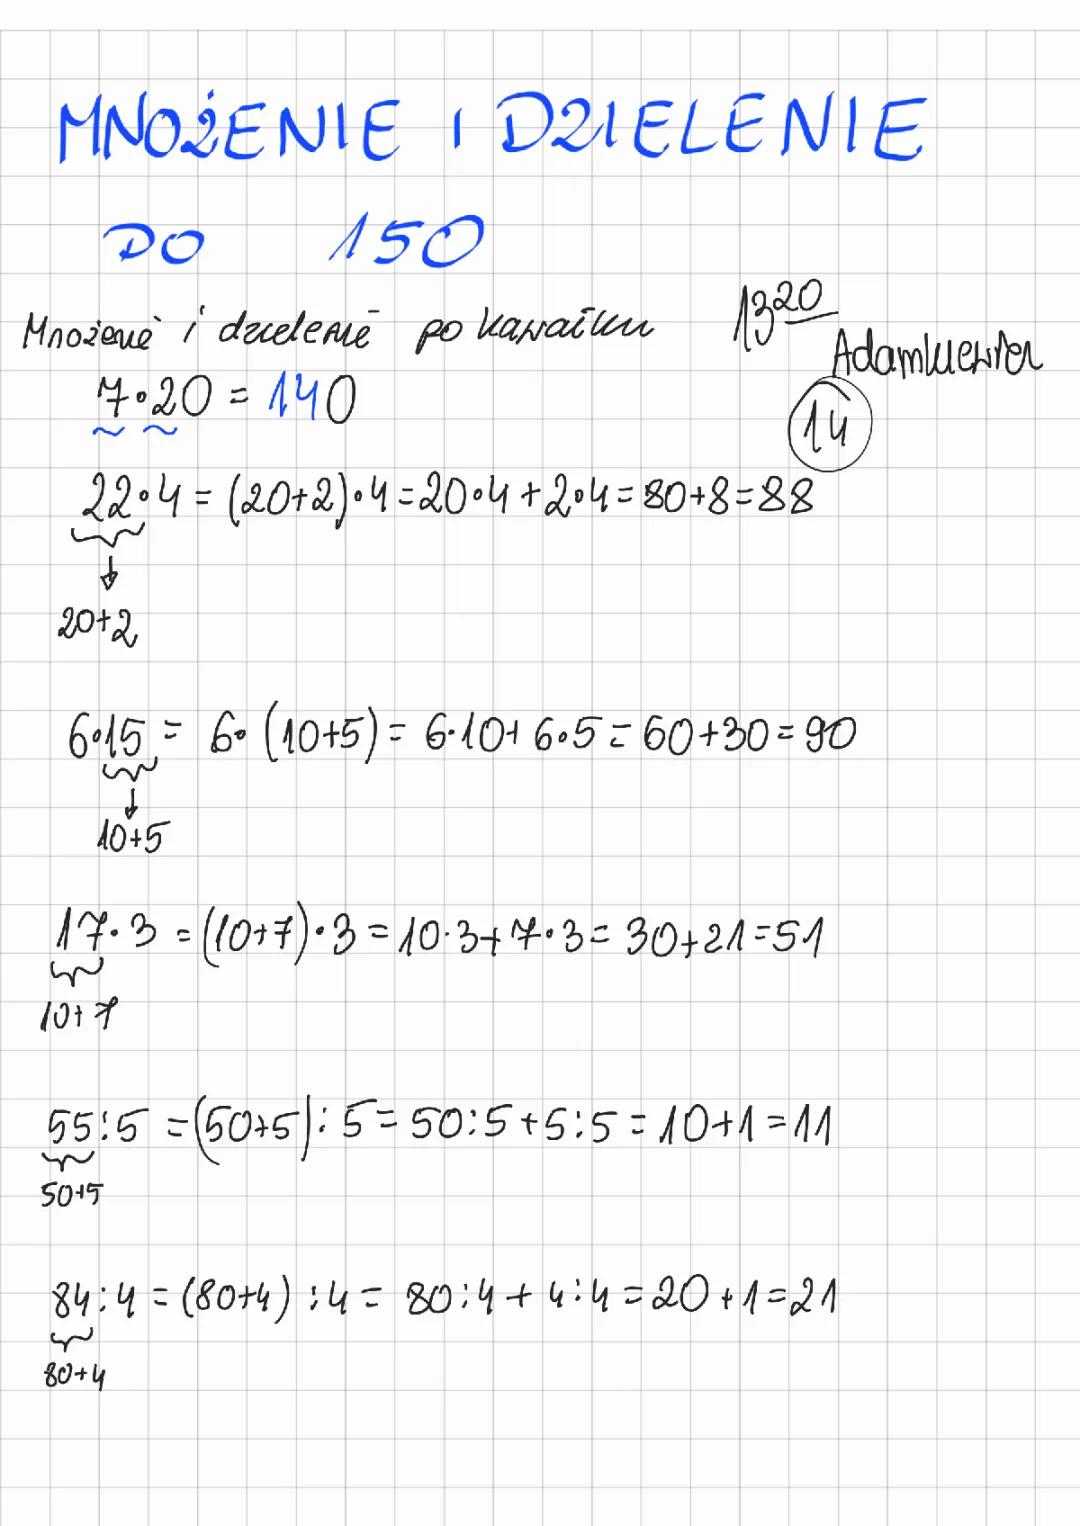 MNOŻENIE I DZIELENIE
DO 150
Mnożenie i dzielenie po kawałku
13 20
Adamkiewicz
7·20 = 140
14
22·4 = (20+2)·4 = 20·4 + 2·4 = 80+8 = 88
20+2
6·15 = 6·(10+5) = 6·10+6·5 = 60+30 = 90
10+5
17·3 = (10+7)·3 = 10·3+7·3 = 30+21 = 51
10+7
55:5 = (50+5):5 = 50:5+5:5 = 10+1 = 11
50+5
84:4 = (80+4):4 = 80:4 + 4:4 = 20+1 = 21
80+4